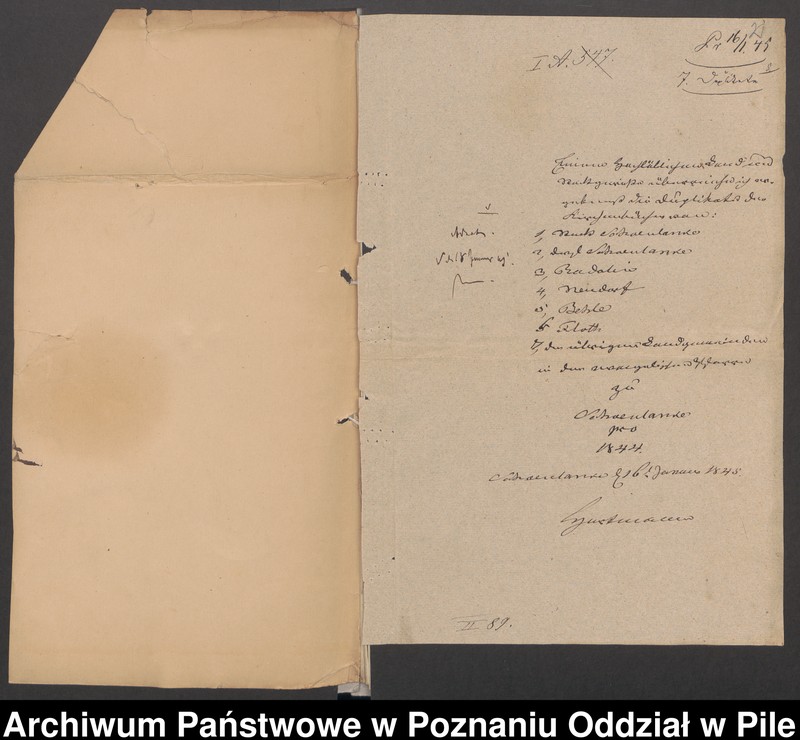 I A. 547.
Pr 16/1. 45
7. Duplikate
Einem Land und
Stadtgericht überreiche ich
die Duplikate der
Kirchenbücher von:
1, Stadt Schoenlanke
2, Dorf Schoenlanke
3, Radolin
4, Neudorf
5, Behle
6, Floth
7, den übrigen Landgemeinden
in der evangelischen Pfarre
zu
Schoenlanke
pro
1844.
Schoenlanke d. 16t Januar 1845
II 89.
Archiwum Państwowe w Poznaniu Oddział w Pile